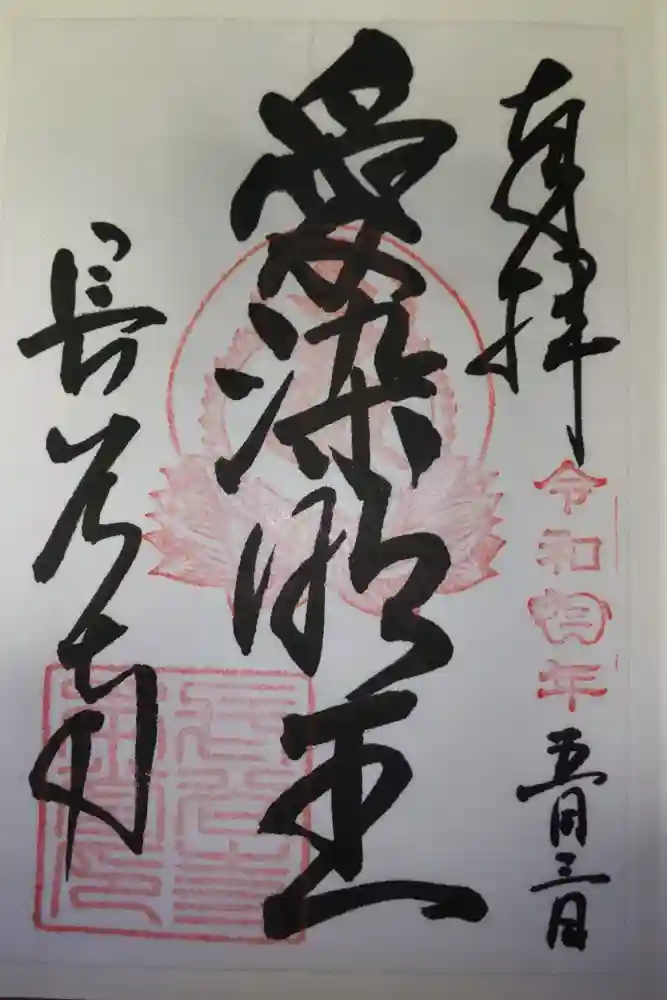 奉拝
令和四年
五月三日
愛染明王
長谷寺